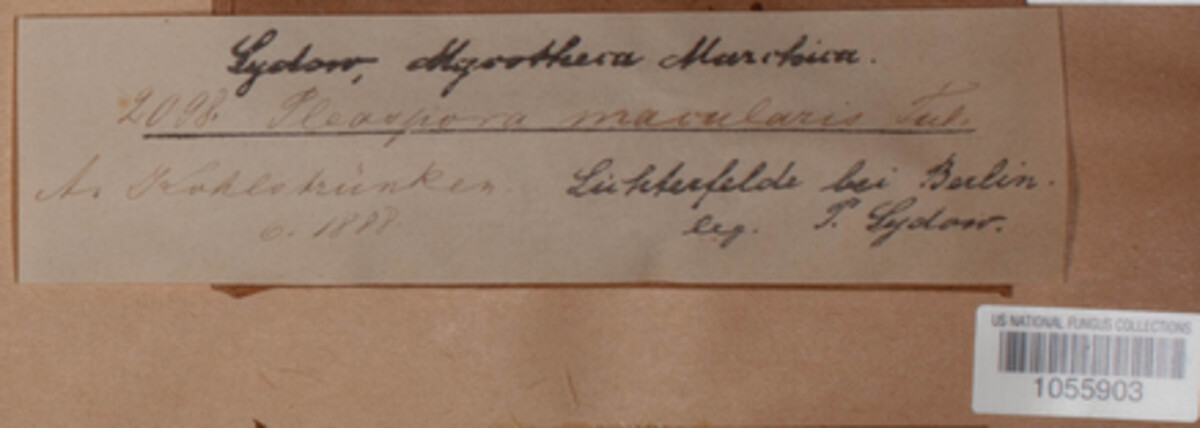 Sydow, Mycotheca Marchica.
2098. Pleospora macularis Fuk.
A. Kohlstrünken. Lichterfelde bei Berlin.
6. 1888. leg. P. Sydow.
US NATIONAL FUNGUS COLLECTIONS
1055903